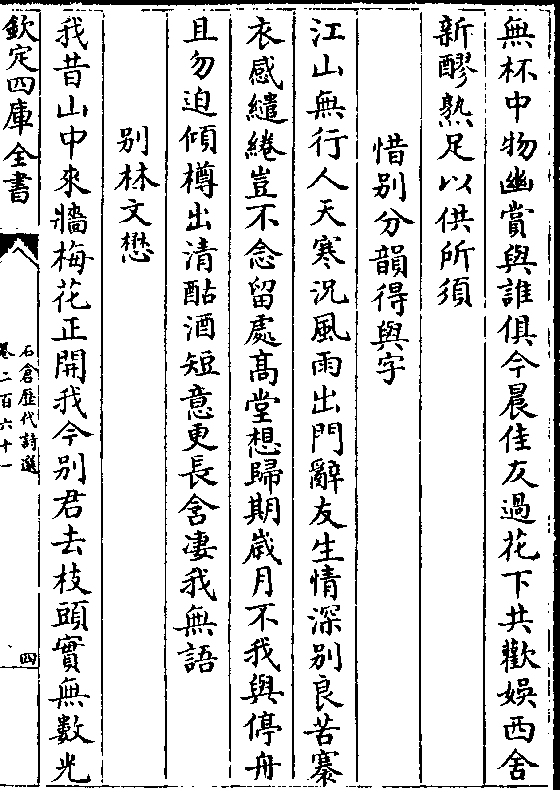 無杯中物幽賞與誰俱今晨佳友過花下共歡娛西舍
新醪熟足以供所須
惜别分韻得與字
江山無行人天寒況風雨出門辭友生情深别良苦褰
衣感繾綣豈不念留處髙堂想歸期歳月不我與停舟
且勿迫傾樽出清酤酒短意更長含凄我無語
别林文懋
我昔山中來牆梅花正開我今别君去枝頭實無數光
欽定四庫全書
石倉歴代詩選
卷二百六十一
四